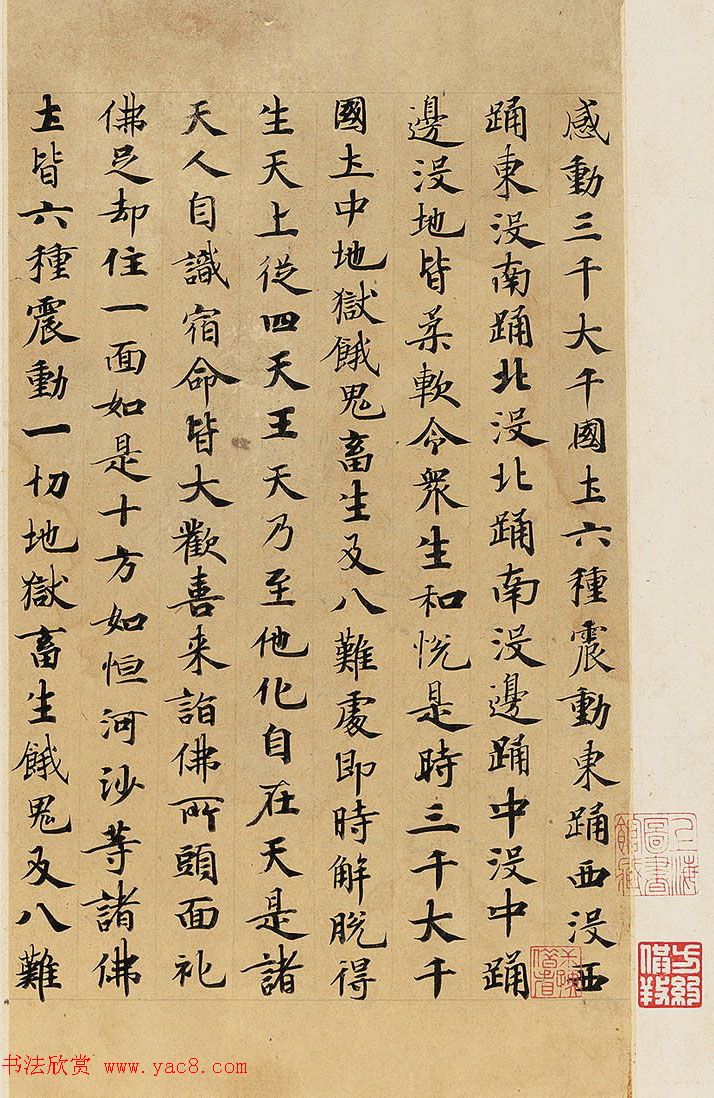 感動三千大千國土六種震動東踊西没西
踊東没南踊北没北踊南没邊踊中没中踊
邊没地皆柔軟令衆生和悅是時三千大千
國土中地獄餓鬼畜生及八難處即時解脫得
生天上從四天王天乃至他化自在天是諸
天人自識宿命皆大歡喜来詣佛所頭面礼
佛足却住一面如是十方如恒河沙等諸佛
土皆六種震動一切地獄畜生餓鬼及八難
上海圖書館藏
书法欣赏 www.yac8.com